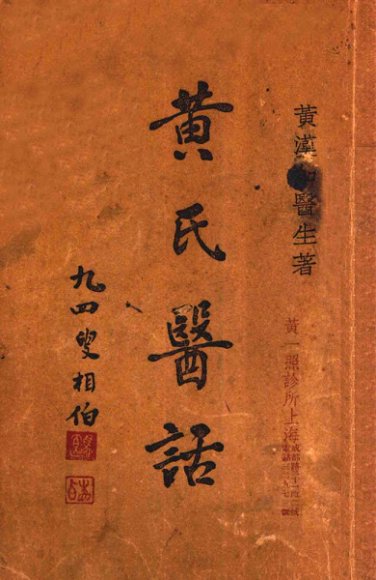 黃漢醫生著
黃一照診所上海
黃氏醫話
九四叟相伯